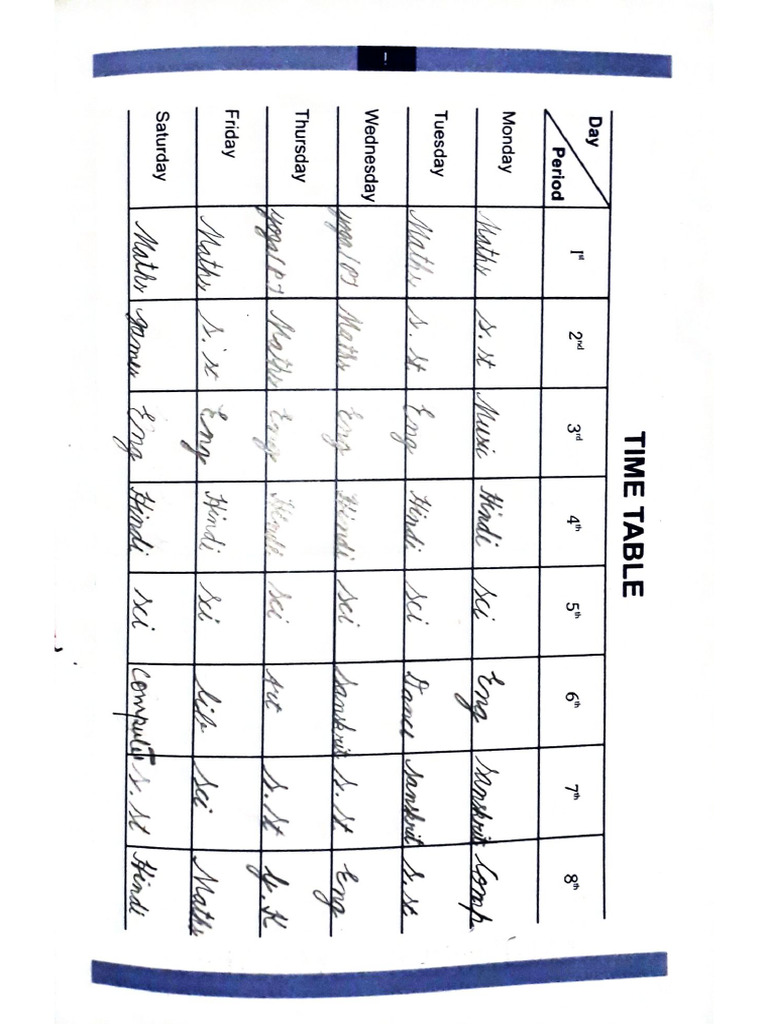 TIME TABLE
Day Period 1st 2nd 3rd 4th 5th 6th 7th 8th
Monday Maths S.st Music Hindi Sci Eng Sanskrit Comp
Tuesday Maths S.st Eng Hindi Sci Dance Sanskrit S.st
Wednesday yoga/P.T Maths Eng Hindi Sci Sanskrit S.st Eng
Thursday yoga/P.T Maths Eng Hindi Sci Art S.st G.K
Friday Maths S.st Eng Hindi Sci lib Sci Maths
Saturday Maths games Eng Hindi sci Computer S.st Hindi